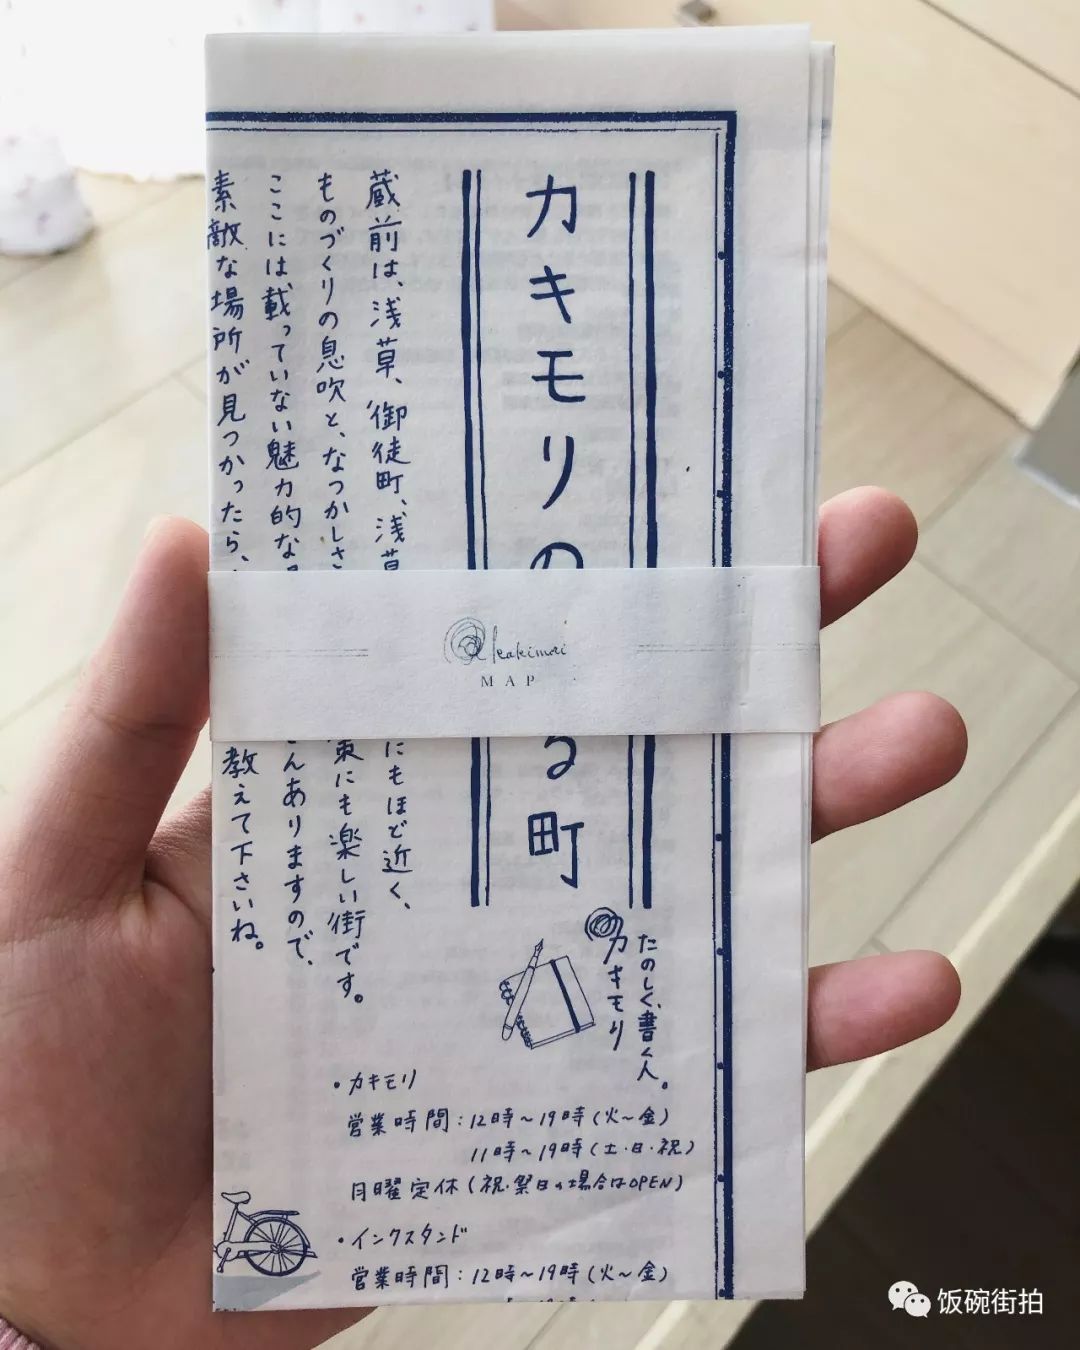 カキモリの
る町
蔵前は、浅草、御徒町、浅草
にもほど近く、
ものづくりの息吹と、なつかしさ
策にも楽しい街です。
ここには載っていない魅力的な
さんありますので、
素敵な場所が見つかったら、
教えて下さいね。
kakimori
MAP
たのしく、書く人。
カキモリ
・カキモリ
営業時間:12時〜19時(火〜金)
11時〜19時(土・日・祝)
月曜定休(祝・祭日の場合はOPEN)
・インクスタンド
営業時間:12時〜19時(火〜金)
饭碗街拍